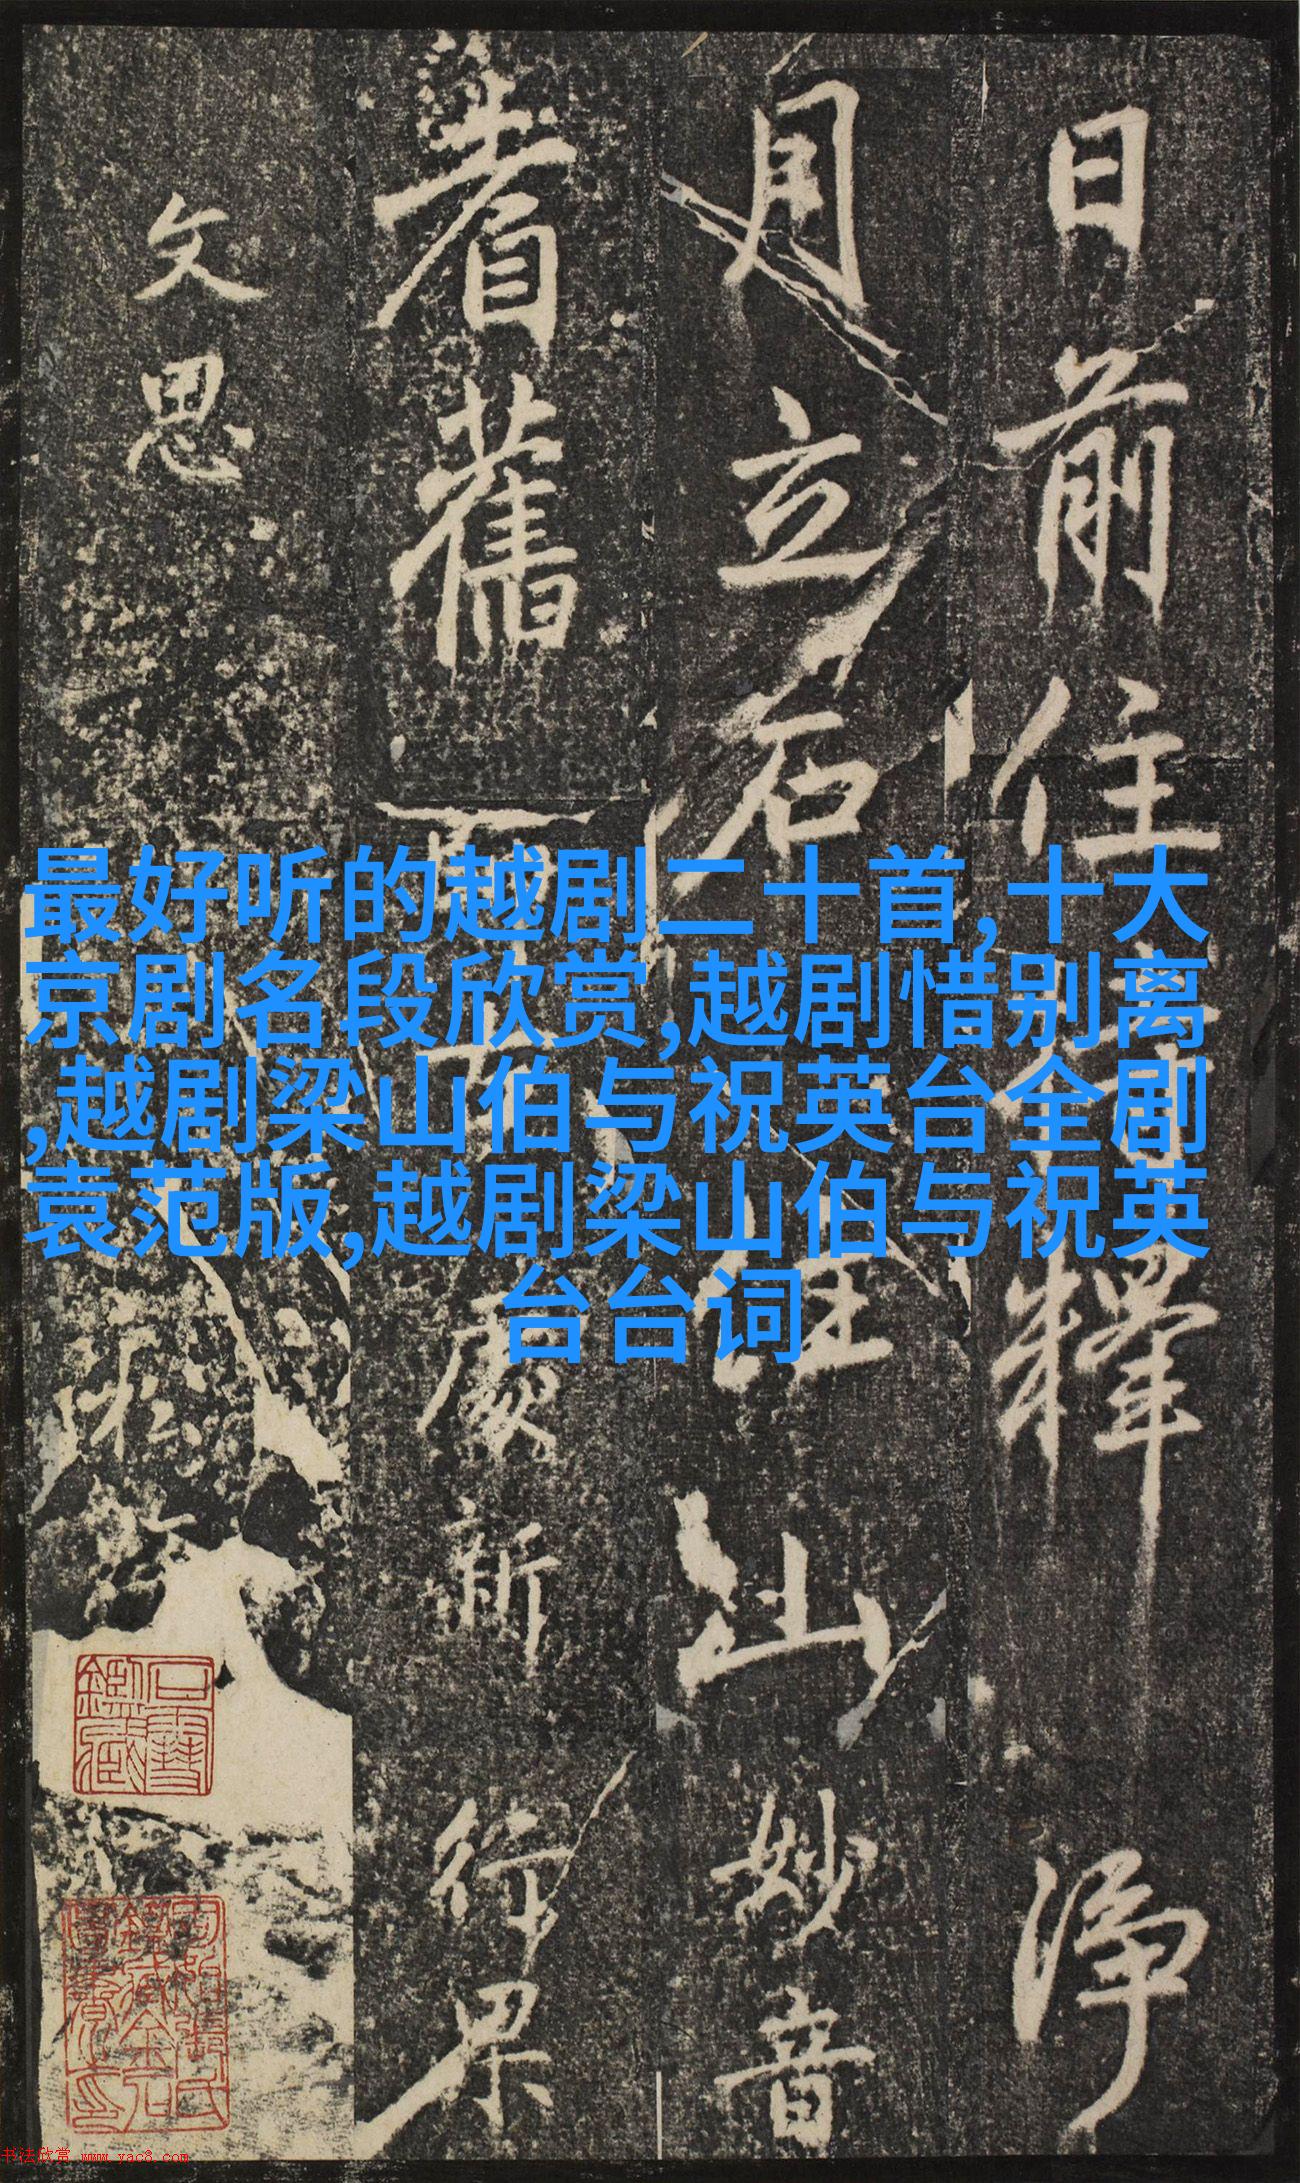 日前住釋淨
月立石山妙音
耆舊處新行果
文思
最好听的越剧二十首,十大
京剧名段欣赏,越剧惜别离
,越剧梁山伯与祝英台全剧
袁范版,越剧梁山伯与祝英
台台词
石雪鑑藏
书法欣赏 www.yac8.com